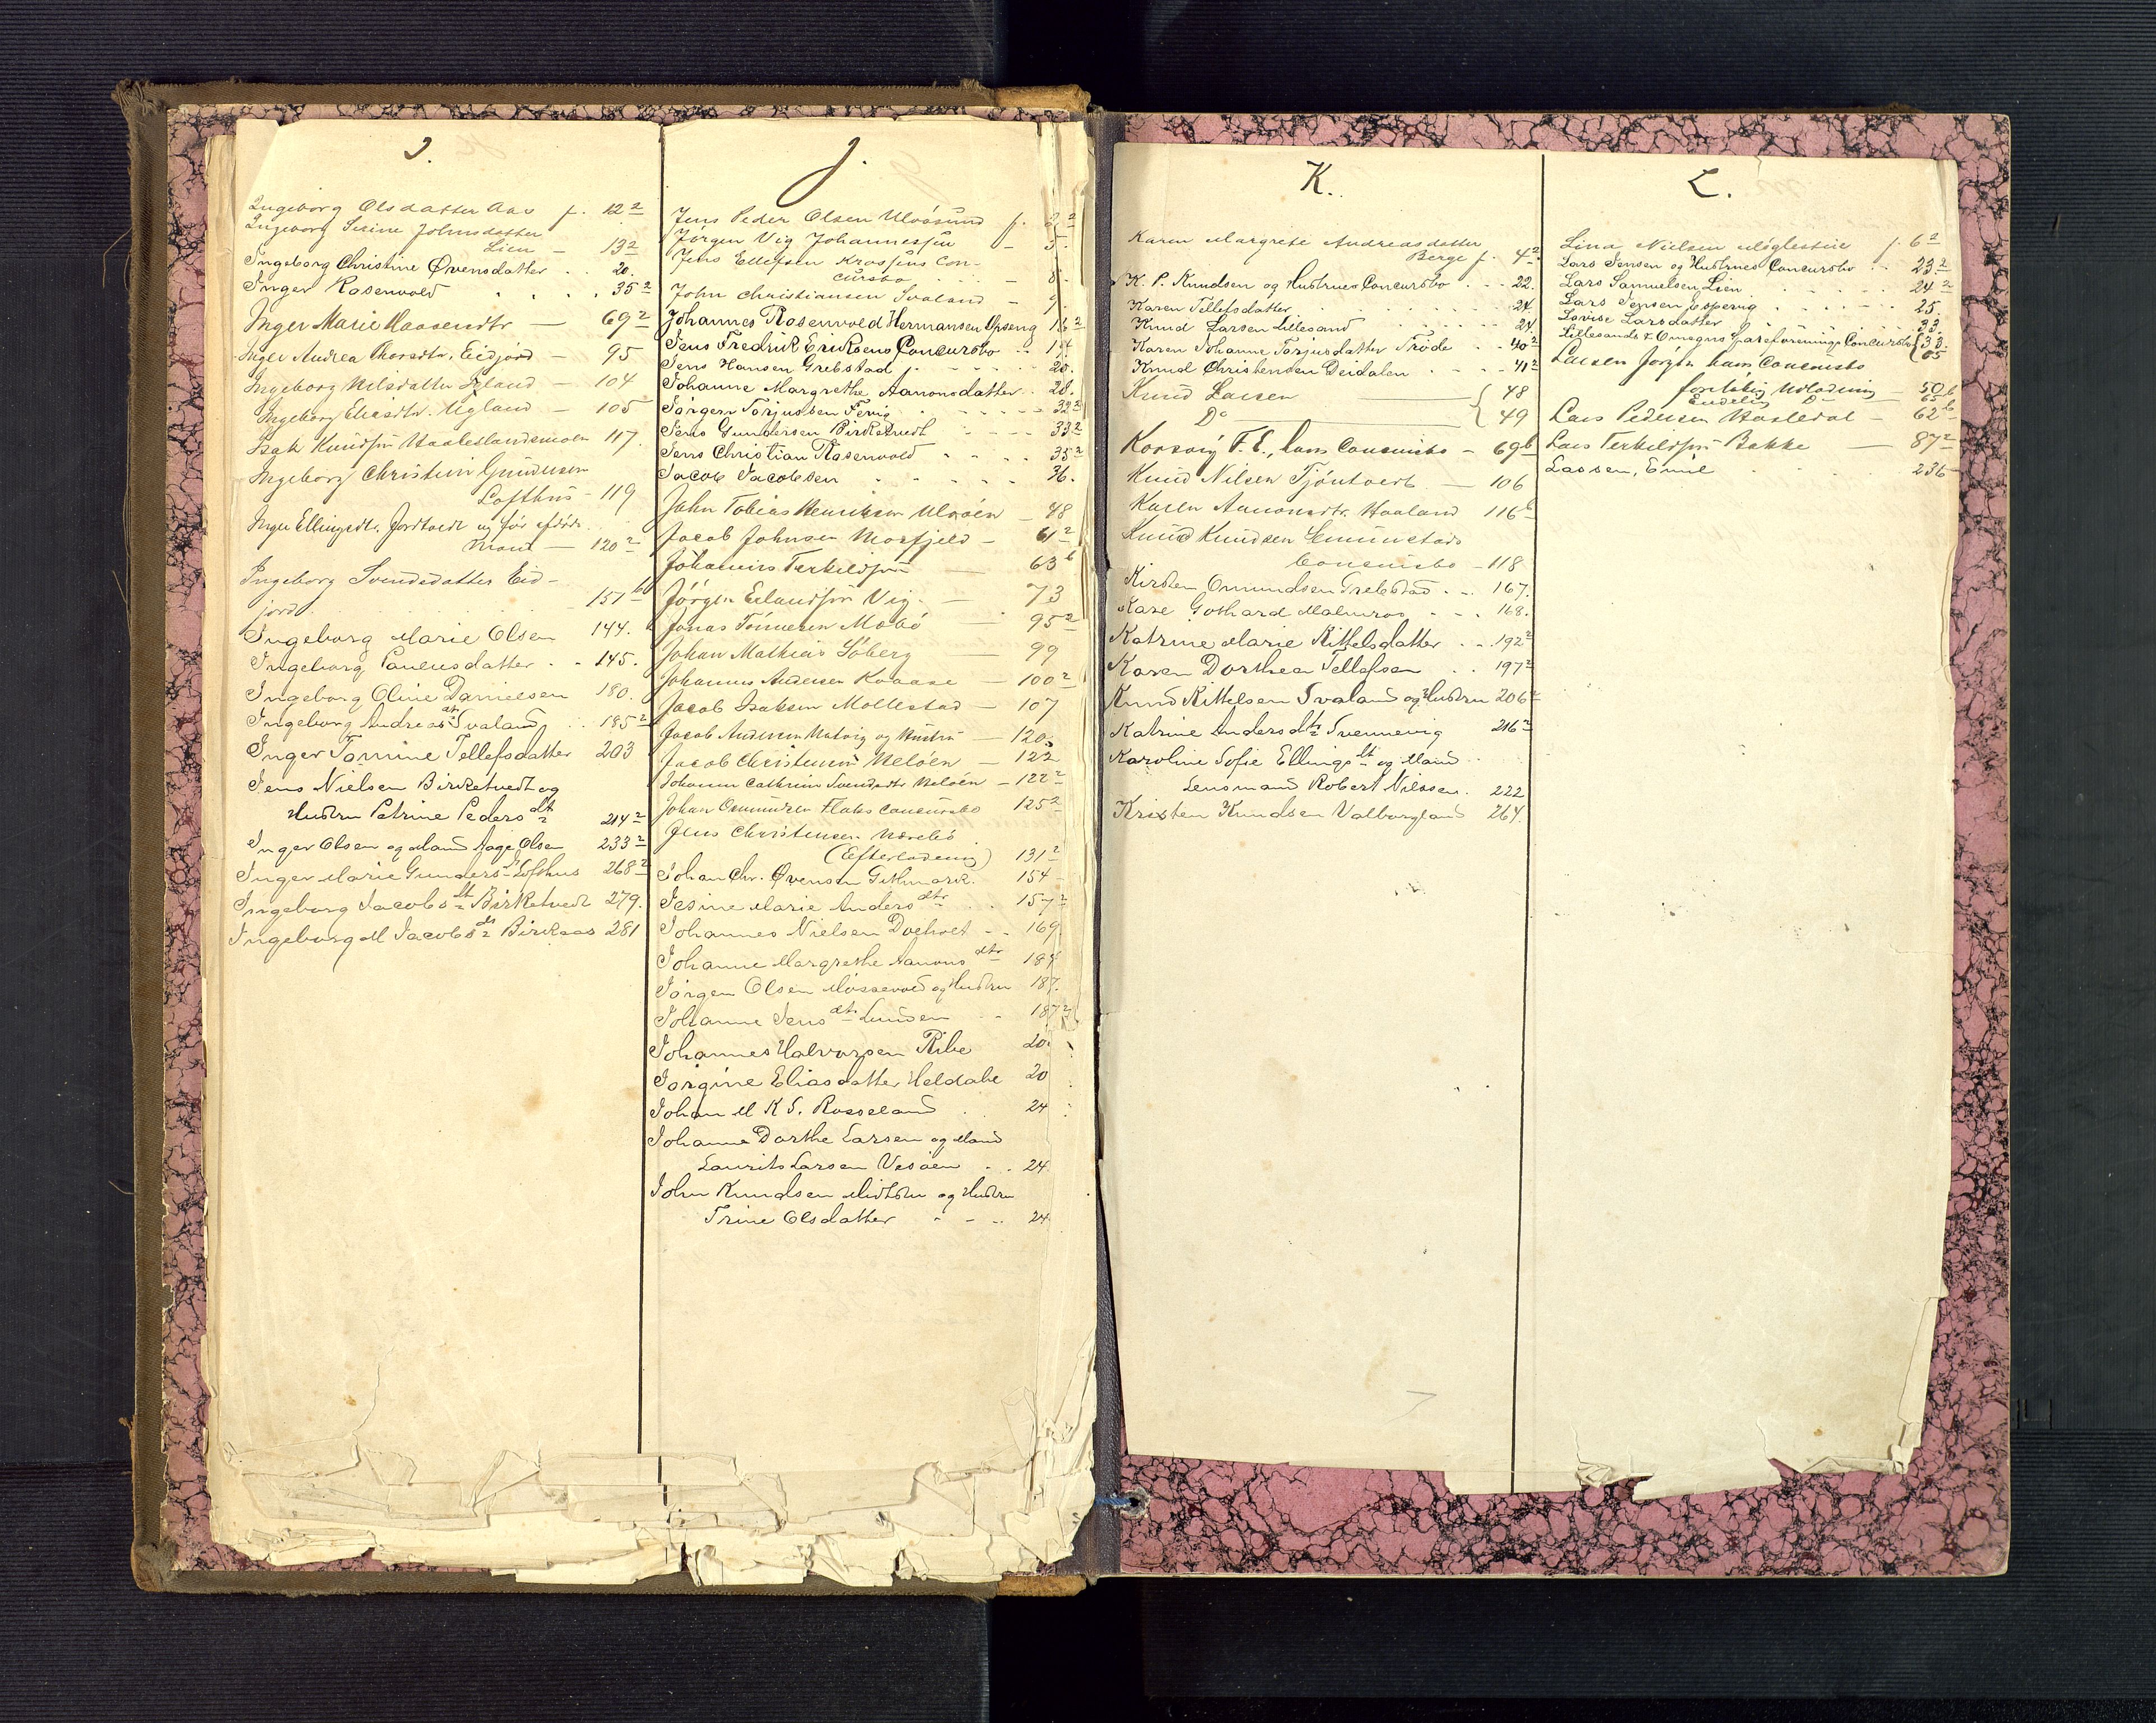 I.
Ingeborg Olsdatter Aas f. 12²
Ingeborg Serine Johnsdatter
Lien — 13²
Ingeborg Christine Øvensdatter . . 20.
Inger Rosenvold . . . . 35²
Inger Marie Haagensdtr — 69²
Inger Andrea Thorsdtr. Eidjord — 95
Ingeborg Nilsdatter — 104
Ingeborg Eliasdtr. Ugland — 105
Isak Knudsen Haabeslandsmoen 117
Ingeborg Christine Gundersen
Lofthus - 119
Inger Ellingsdt. Jordtvedt og før afdøde
Mand — 120²
Ingeborg Svendsdatter Eid-
jord . . . 151b
Ingeborg Marie Olsen 144.
Ingeborg Paulusdatter . . 145.
Ingeborg Oline Danielsen 180.
Ingeborg Andreasdtr Svaland . . 185²
Inger Tomine Tellefsdatter 203
Jens Nielsen Birketvedt og
Hustru Petrine Pedersdtr 214²
Inger Olsen og Mand Aage Olsen 233²
Inger Marie Gundersdt Lofthus 268²
Ingeborg Jacobsdt Birketvedt 279.
Ingeborg M Jacobsdt Birkaas 281
J.
Jens Peder Olsen Ulvøsund f. 2²
Jørgen Vig Johannessen — 5.
Jens Ellefsen Krossjus Con-
cursbo . . . — 8.
John Christiansen Svaland — 9.
Johannes Rosenvold Hermansen Opseng 16²
Jens Fredrik Eriksens Concursbo . . 19.
Jens Hansen Grebstad . - - - 20.
Johanne Margrethe Aanonsdatter . 28.
Jørgen Torjussen Fevig . - - - 32²
Jens Gundersen Birketvedt - - - 33²
Jens Christian Rosenvold . . . . 35²
Jacob Jacobsen . . . . . 36.
John Tobias Henriksen Ulvøen — 48
Jacob Johnsen Mosfjeld — 61²
Johannes Terkildsen — 63b
Jørgen Erlandsen Vig — 73
Jonas Tønnesen Mæbø — 95²
Johan Mathias Løberg — 99
Johannes Andersen Kaaase — 100²
Jacob Isaksen Mollestad — 107
Jacob Andersen Natvig og Hustru — 120.
Jacob Christensen Meløen — 122
Johanne Cathrine Svendsdtr Meløen — 122²
Johan Osmundsen Flaks Concursbo 125²
Jens Christensen Nørebø
(Efterladening) 131²
Johan Chr. Øvensen Githmark. 154
Jesine Marie Andersdtr . . 157²
Johannes Nielsen Dvehvet . . 169
Johanne Margrethe Aanonsdtr 187
Jørgen Olsen Møssevold og Hustru 187.
Johanne Jensdtr Lunden . . 187²
Johannes Halvorsen Ribe 20
Jørgine Eliasdatter Heldahl 20
Johan M K S. Rosseland . . 24
Johanne Dorthe Larsen og Mand
Laurits Larsen Vesøen . . 24.
John Knudsen Midtbø og Hustru
Trine Olsdatter . - . . 24
K.
Karen Margrete Andreasdatter
Berge f. 4²
K. P. Knudsen og Hustrues Concursbo . - - 22.
Karen Tellefsdatter . . . . . . 24.
Knud Larsen Lillesand . . . . . . 24.
Karen Johanne Torjusdatter Trøde . . 40²
Knud Christensen Deidalen . - - - 41²
Knud Larsen — { 48
Do — { 49
Korsvig F. E., hans Concursbo - 69b
Knud Nilsen Tjöntvedt — 106
Karen Aanonsdtr. Haaland 116b
Knud Knudsen
Concursbo — 118
Kirsten Omundsen Grebstad . . . 167.
Kare Gothard Malmros . - . 168.
Katrine Marie Kittelsdatter . - . 192²
Karen Dorthea Tellefsen . . 197²
Knud Kittelsen Svaland og Hustru 206²
Katrine Andersdtr Svennevig 216²
Karoline Sofie Ellingsdt og Mand . .
Lensmand Robert Nilssen . 222
Kristen Knudsen Valborgland 264.
L.
Lina Nielsen Møglestue f. 6²
Lars Jensen og Hustrues Concursbo . . 23²
Lars Samuelsen Lien . . . . . 24²
Lars Jensen Jospervig . . . - - - 25.
Lovise Larsdatter . . . . . . 33.
Lillesands & Omegns Spareforenings Concursbo { 33.
65
Larsen Jørgen hans Concursbo
foreløbig Udlodning 50b
Endelig Do — 65
Lars Pedersen Hasledal — 62b
Lars Terkildsen Bakke — 87²
Lassen, Emil . . . . 236